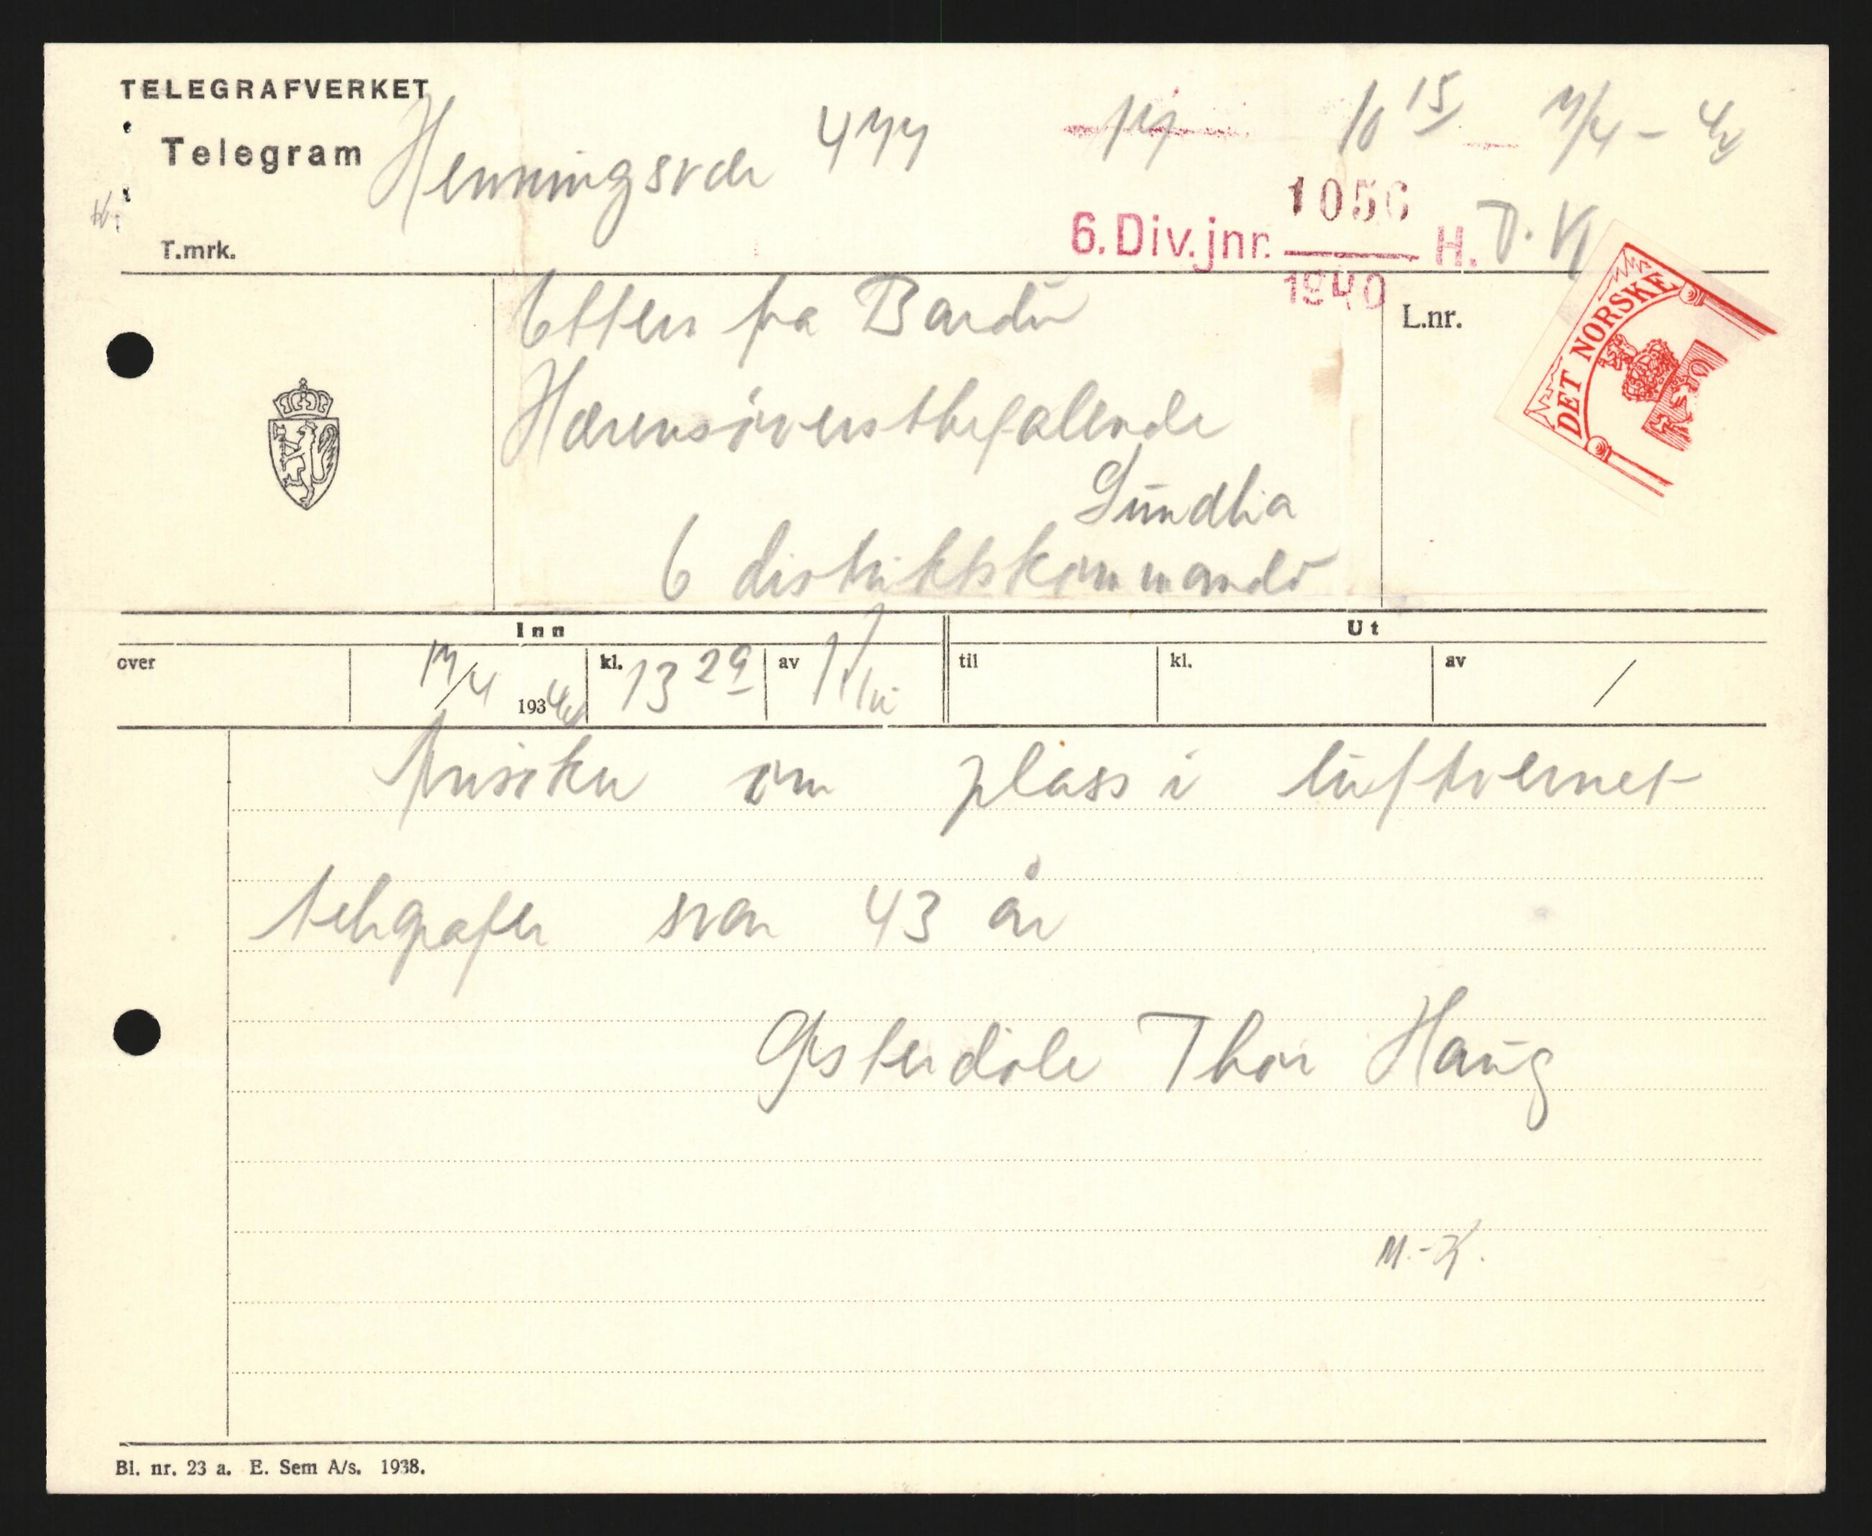 TELEGRAFVERKET
Telegram
Henningsvær 477 14 10 15 17/4 - 40
T.mrk.
6. Div. jnr. 1056 H. D.K
1940
Etters fra Bardu
L.nr.
DET NORSKE
Hærensøverstbefalende
Sundlia
6 distriktskommando
Inn
Ut
over 17/4 1940 kl. 13 29 av til kl. av /
Ansøker om plass i luftvernet
telegrafer svar 43 år
Østerdøle Thor Haug
M.-K.
Bl. nr. 23 a. E. Sem A/s. 1938.